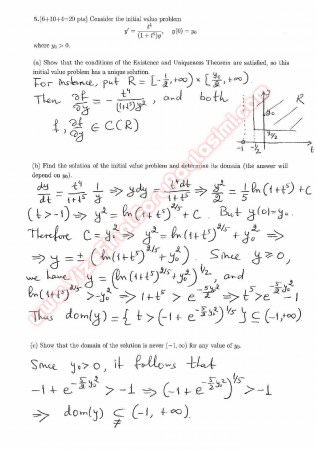 5.[6+10+4=20 pts] Consider the initial value problem
y' = t⁴/((1+t⁵)y), y(0) = y₀
where y₀ > 0.
(a) Show that the conditions of the Existence and Uniqueness Theorem are satisfied, so this
initial value problem has a unique solution.
For instance, put R = [-1/2, +∞) × [y₀/2, +∞)
Then ∂f/∂y = - t⁴/((1+t⁵)y²), and both
f, ∂f/∂y ∈ C(R)
R
y₀
y₀/2
-1 -1/2 t
(b) Find the solution of the initial value problem and determine its domain (the answer will
depend on y₀).
dy/dt = t⁴/(1+t⁵) 1/y ⇒ ydy = t⁴dt/(1+t⁵) ⇒ y²/2 = 1/5 ln(1+t⁵)+C
(t>-1) ⇒ y² = ln(1+t⁵)^2/5 + C. But y(0)=y₀.
Therefore C = y₀² ⇒ y² = ln(1+t⁵)^2/5 + y₀² ⇒
⇒ y = ± (ln(1+t⁵)^2/5 + y₀²). Since y ≥ 0,
we have y = (ln(1+t⁵)^2/5 + y₀²)^1/2, and
ln(1+t⁵)^2/5 > -y₀² ⇒ 1+t⁵ > e^-5y₀²/2 ⇒ t⁵ > e^-5/2 y₀² - 1
Thus dom(y) = { t > (-1 + e^-5/2 y₀²)^1/5 } ⊆ (-1, +∞)
(c) Show that the domain of the solution is never (-1, ∞) for any value of y₀.
Since y₀ > 0, it follows that
-1 + e^-5/2 y₀² > -1 ⇒ (-1 + e^-5/2 y₀²)^1/5 > -1
⇒ dom(y) ⊊ (-1, +∞).